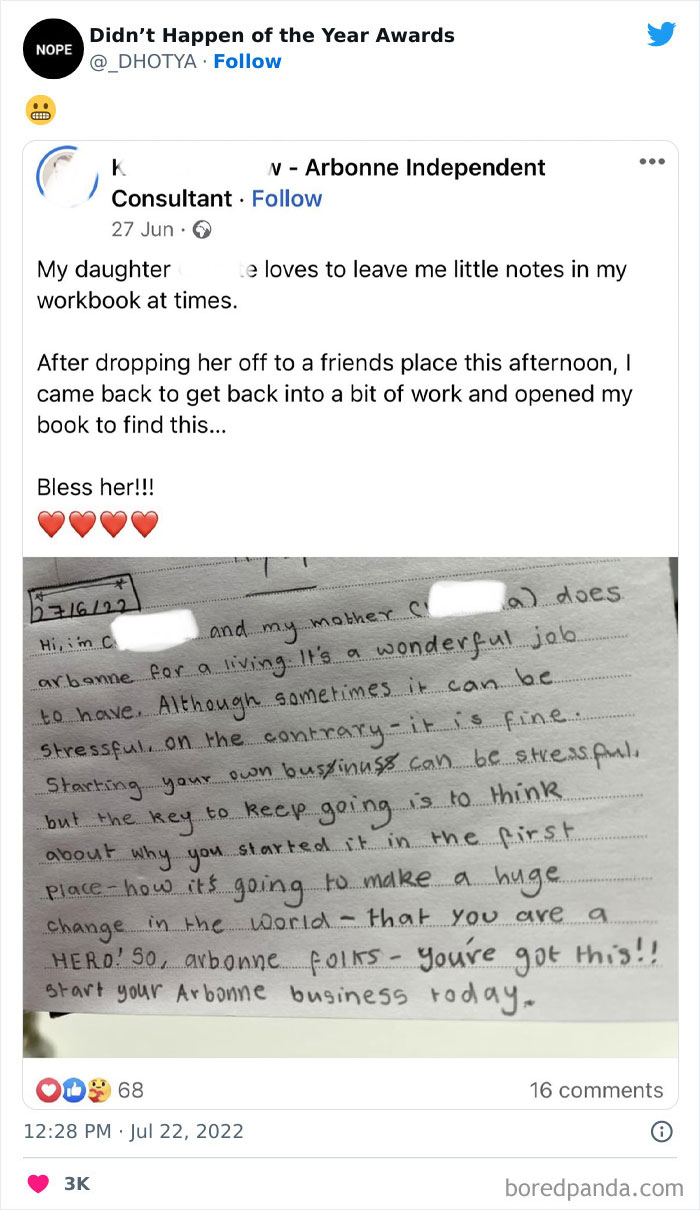 NOPE
Didn't Happen of the Year Awards
@_DHOTYA · Follow
K w - Arbonne Independent
Consultant · Follow
27 Jun ·
My daughter e loves to leave me little notes in my
workbook at times.
After dropping her off to a friends place this afternoon, I
came back to get back into a bit of work and opened my
book to find this...
Bless her!!!
27/6/22
Hi, i'm C and my mother (C a) does
arbonne for a living. It's a wonderful job
to have. Although sometimes it can be
stressful, on the contrary - it is fine.
Starting your own bussinuss can be stressful,
but the key to keep going is to think
about why you started it in the first
place - how it's going to make a huge
change in the world - that you are a
HERO! So, arbonne folks - you're got this!!
Start your Arbonne business today.
68
16 comments
12:28 PM · Jul 22, 2022
3K
boredpanda.com